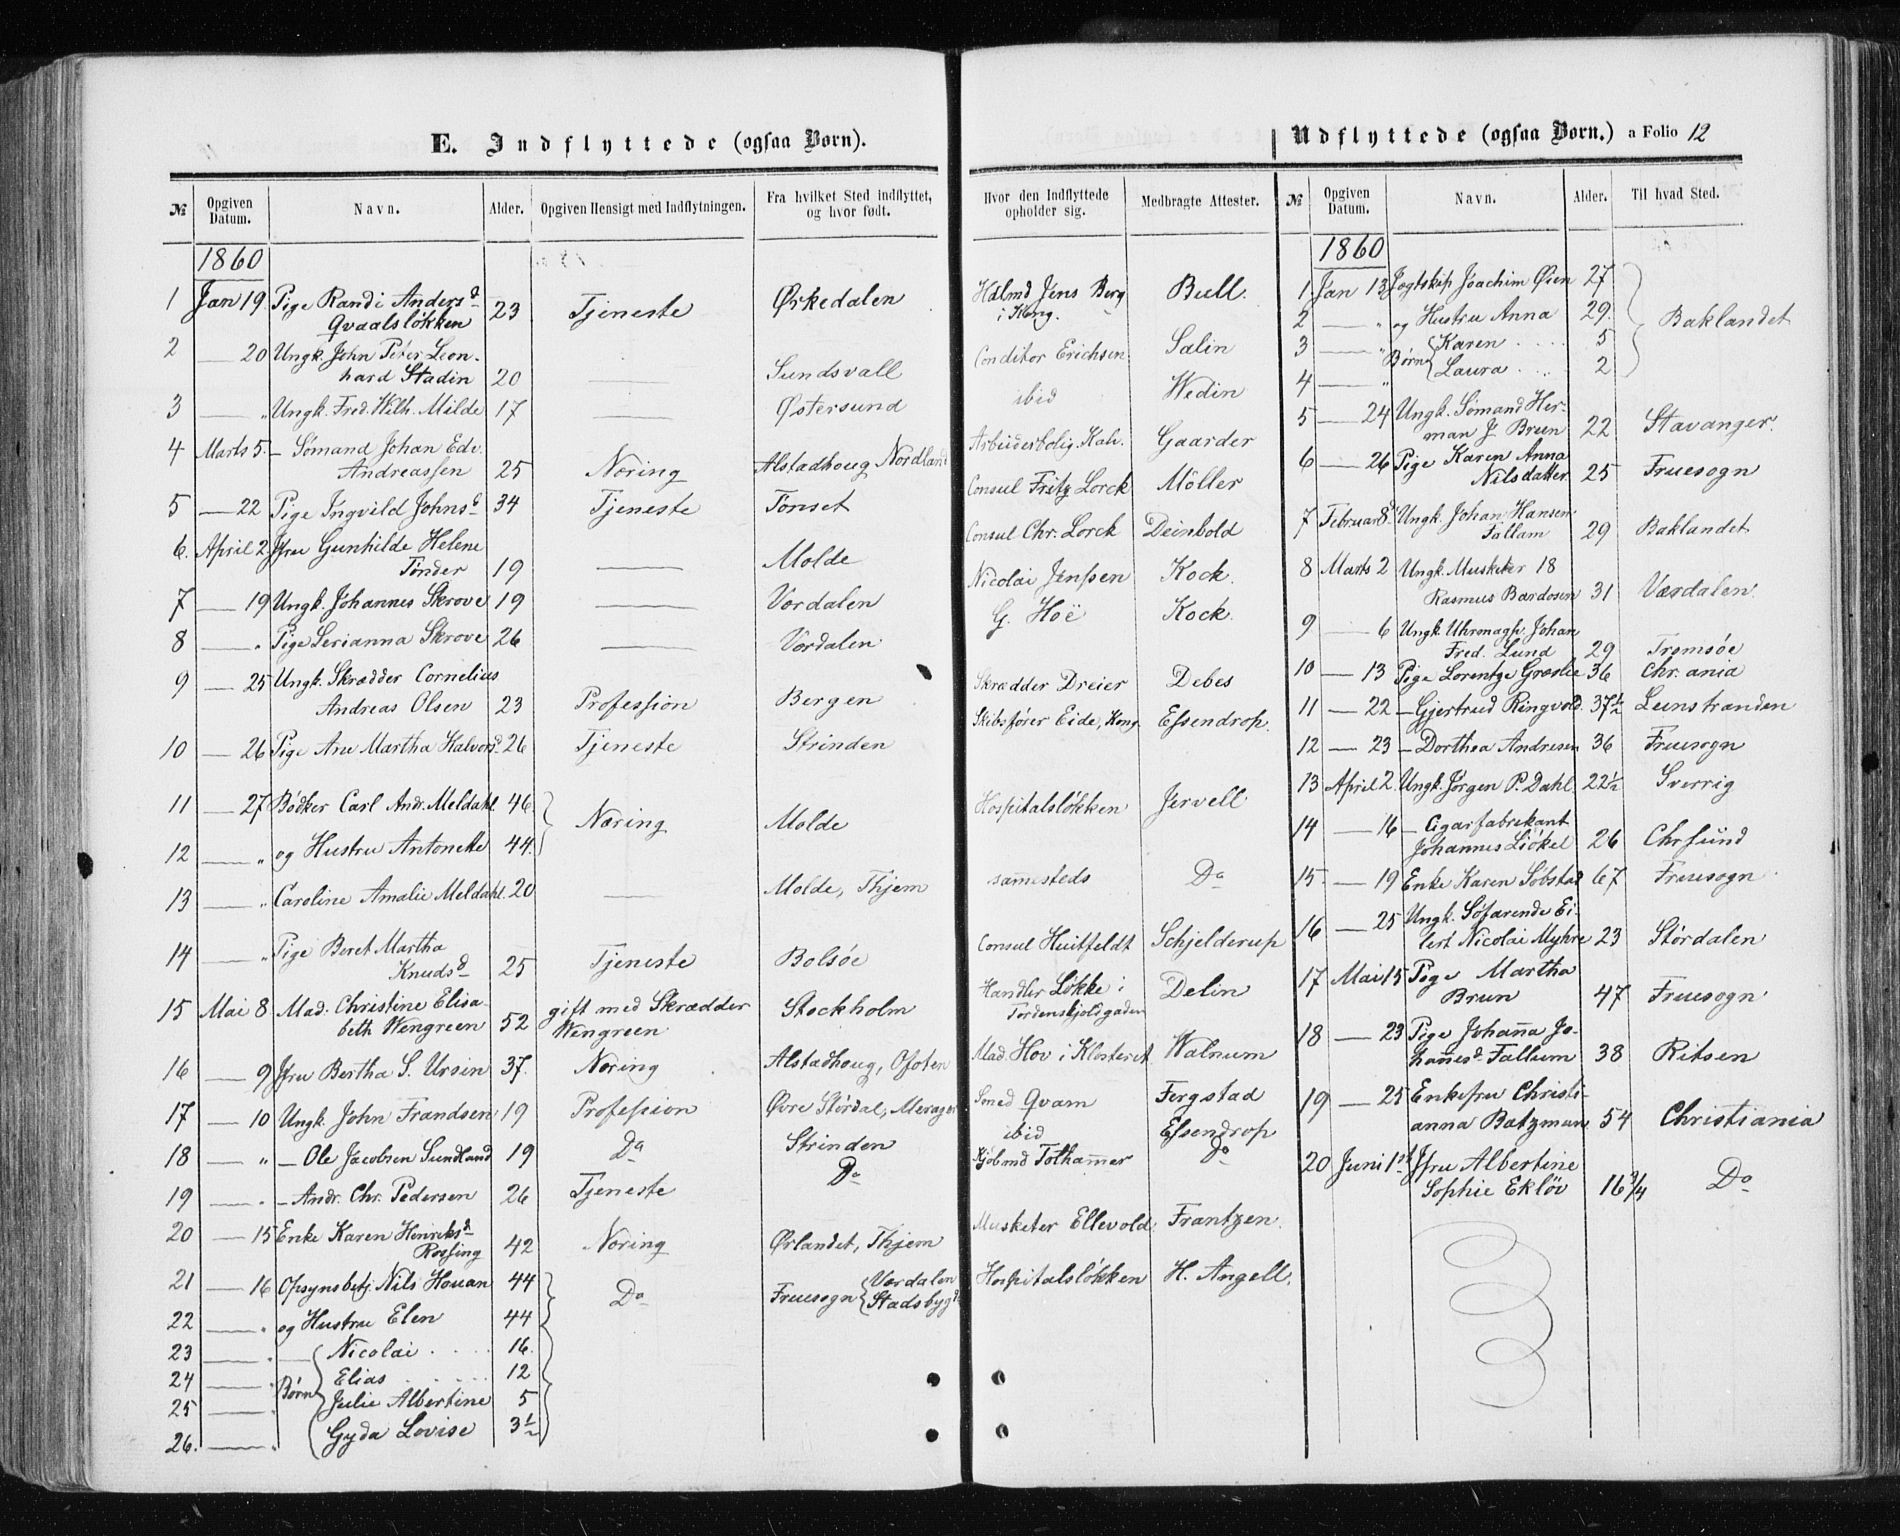 E. Indflyttede (ogsaa Børn).
Udflyttede (ogsaa Børn.) a Folio 12
№ | Opgiven Datum. | Navn. | Alder. | Opgiven Hensigt med Indflytningen. | Fra hvilket Sted indflyttet, og hvor født. | Hvor den Indflyttede opholder sig. | Medbragte Attester.
1860
1 Jan 19 Pige Randi Andersd
Qvaalsløkken 23 Tjeneste Ørkedalen Hdlmd Jens Berg Bull.
i Kong.
2 — 20 Ungk. John Peter Leon-
hard Stadin 20 — Sundsvall Conditor Erichsen Salin
3 — " Ungk. Fred. Wilh. Milde 17 — Østersund ibid Wedin
4 Marts 5. — Sømand Johan Edv.
Andreassen 25 Næring Alstadhoug Nordland Arbeiderbolig. Kalv. Gaarder
5 — 22 Pige Ingvild Johnsd 34 Tjeneste Tønset Consul Fritz Lorck Möller
6. April 2 Jfru Gunhilde Helene
Tønder 19 — Molde Consul Chr. Lorck Deinbold
7 — 19 Ungk. Johannes Skrove 19 — Værdalen Nicolai Jenssen Kock.
8 — " Pige Serianna Skrove 26 — Værdalen G. Høe Kock.
9 — 25 Ungk. Skrædder Cornelius
Andreas Olsen 23 Profession Bergen Skrædder Dreier Debes
10 — 26 Pige Ane Martha Halvorsd 26 Tjeneste Strinden Skibsfører Eide, Kong. Essendrop.
11 — 27 Bødker Carl Andr. Meldahl. 46 Næring Molde Hospitalsløkken Jervell
12 — " og Hustru Antonette 44.
13 — " Caroline Amalie Meldahl. 20 — Molde, Thjem sammesteds Do
14 — " Pige Beret Martha
Knudsd 25 Tjeneste Bolsøe Consul Huitfeldt Schjelderup
15 Mai 8 Mad. Christine Elisa-
beth Wengreen 52 gift med Skrædder Wengreen Stockholm Handler Løkke i Tordenskjoldgaden Delin
16 — 9 Jfru Bertha S. Ursin 37. Næring Alstadhoug, Ofoten Mad. Hov i Klosteret Walnum
17 — 10 Ungk. John Frandsen 19 Profession Øvre Stördal, Merager Smed Qvam Fergstad
18 — " — Ole Jacobsen Sundland 19 Do Strinden ibid Essendrop
19 — " — Andr. Chr. Pedersen 26 Tjeneste Do Kjöbmd Tolhammer Do
20 — 15 Enke Karen Henriksd
Rossing 42 Næring Ørlandet, Thjem Musketer Ellevold. Frantzen.
21 — 16 Opsynsbetj. Nils Houan 44 Do Fruesogn Værdalen Stadsbygd Hospitalsløkken H. Angell.
22 — " og Hustru Elen 44
23 — " Nicolai 16.
24 — " Børn Elias 12
25 — Julie Albertine 5
26. — " Gyda Lovise 3 1/2
№ | Opgiven Datum. | Navn. | Alder. | Til hvad Sted.
1860
1 Jan 13 Jogtskip Joachim Øien 27 Baklandet
2 — " og Hustru Anna 29.
3 — " Børn Karen 5
4 — " Laura 2
5 — 24 Ungk. Sømand Her-
man J Brun 22 Stavanger.
6 — 26 Pige Karen Anna
Nilsdatter 25 Fruesogn
7 Februar 8 Ungk. Johan Hansen
Tallam 29 Baklandet
8 Marts 2 Ungk. Musketer 18
Rasmus Bardosen 31 Værdalen
9 — 6 Ungk. Uhrmagsv. Johan
Fred. Lund 29 Tromsøe
10 — 13 Pige Lorentze Græslie 36 Chr.ania
11 — 22 — Gjertrud Ringvold. 37 1/2 Leinstranden
12 — 23 — Dorthea Andresen 36 Fruesogn
13 April 2. Ungk. Jörgen P. Dahl 22 1/2 Sverrig
14 — 16 — Cigarfabrikant
Johannes Liökel 26 Chrsund
15. — 19 Enke Karen Sobstad 67 Fruesogn
16 — 25 Ungk. Söfarende Ei-
lert Nicolai Myhre 23 Stördalen
17 Mai 15 Pige Martha
Brun 47 Fruesogn
18 — 23 Pige Johanna Jo-
hannesd. Fallum 38 Ritsen
19 — 25 Enkefru Christi-
anna Batzman 54 Christiania
20 Juni 1st Jfru Albertine
Sophie Eklöv 16 3/4 Do